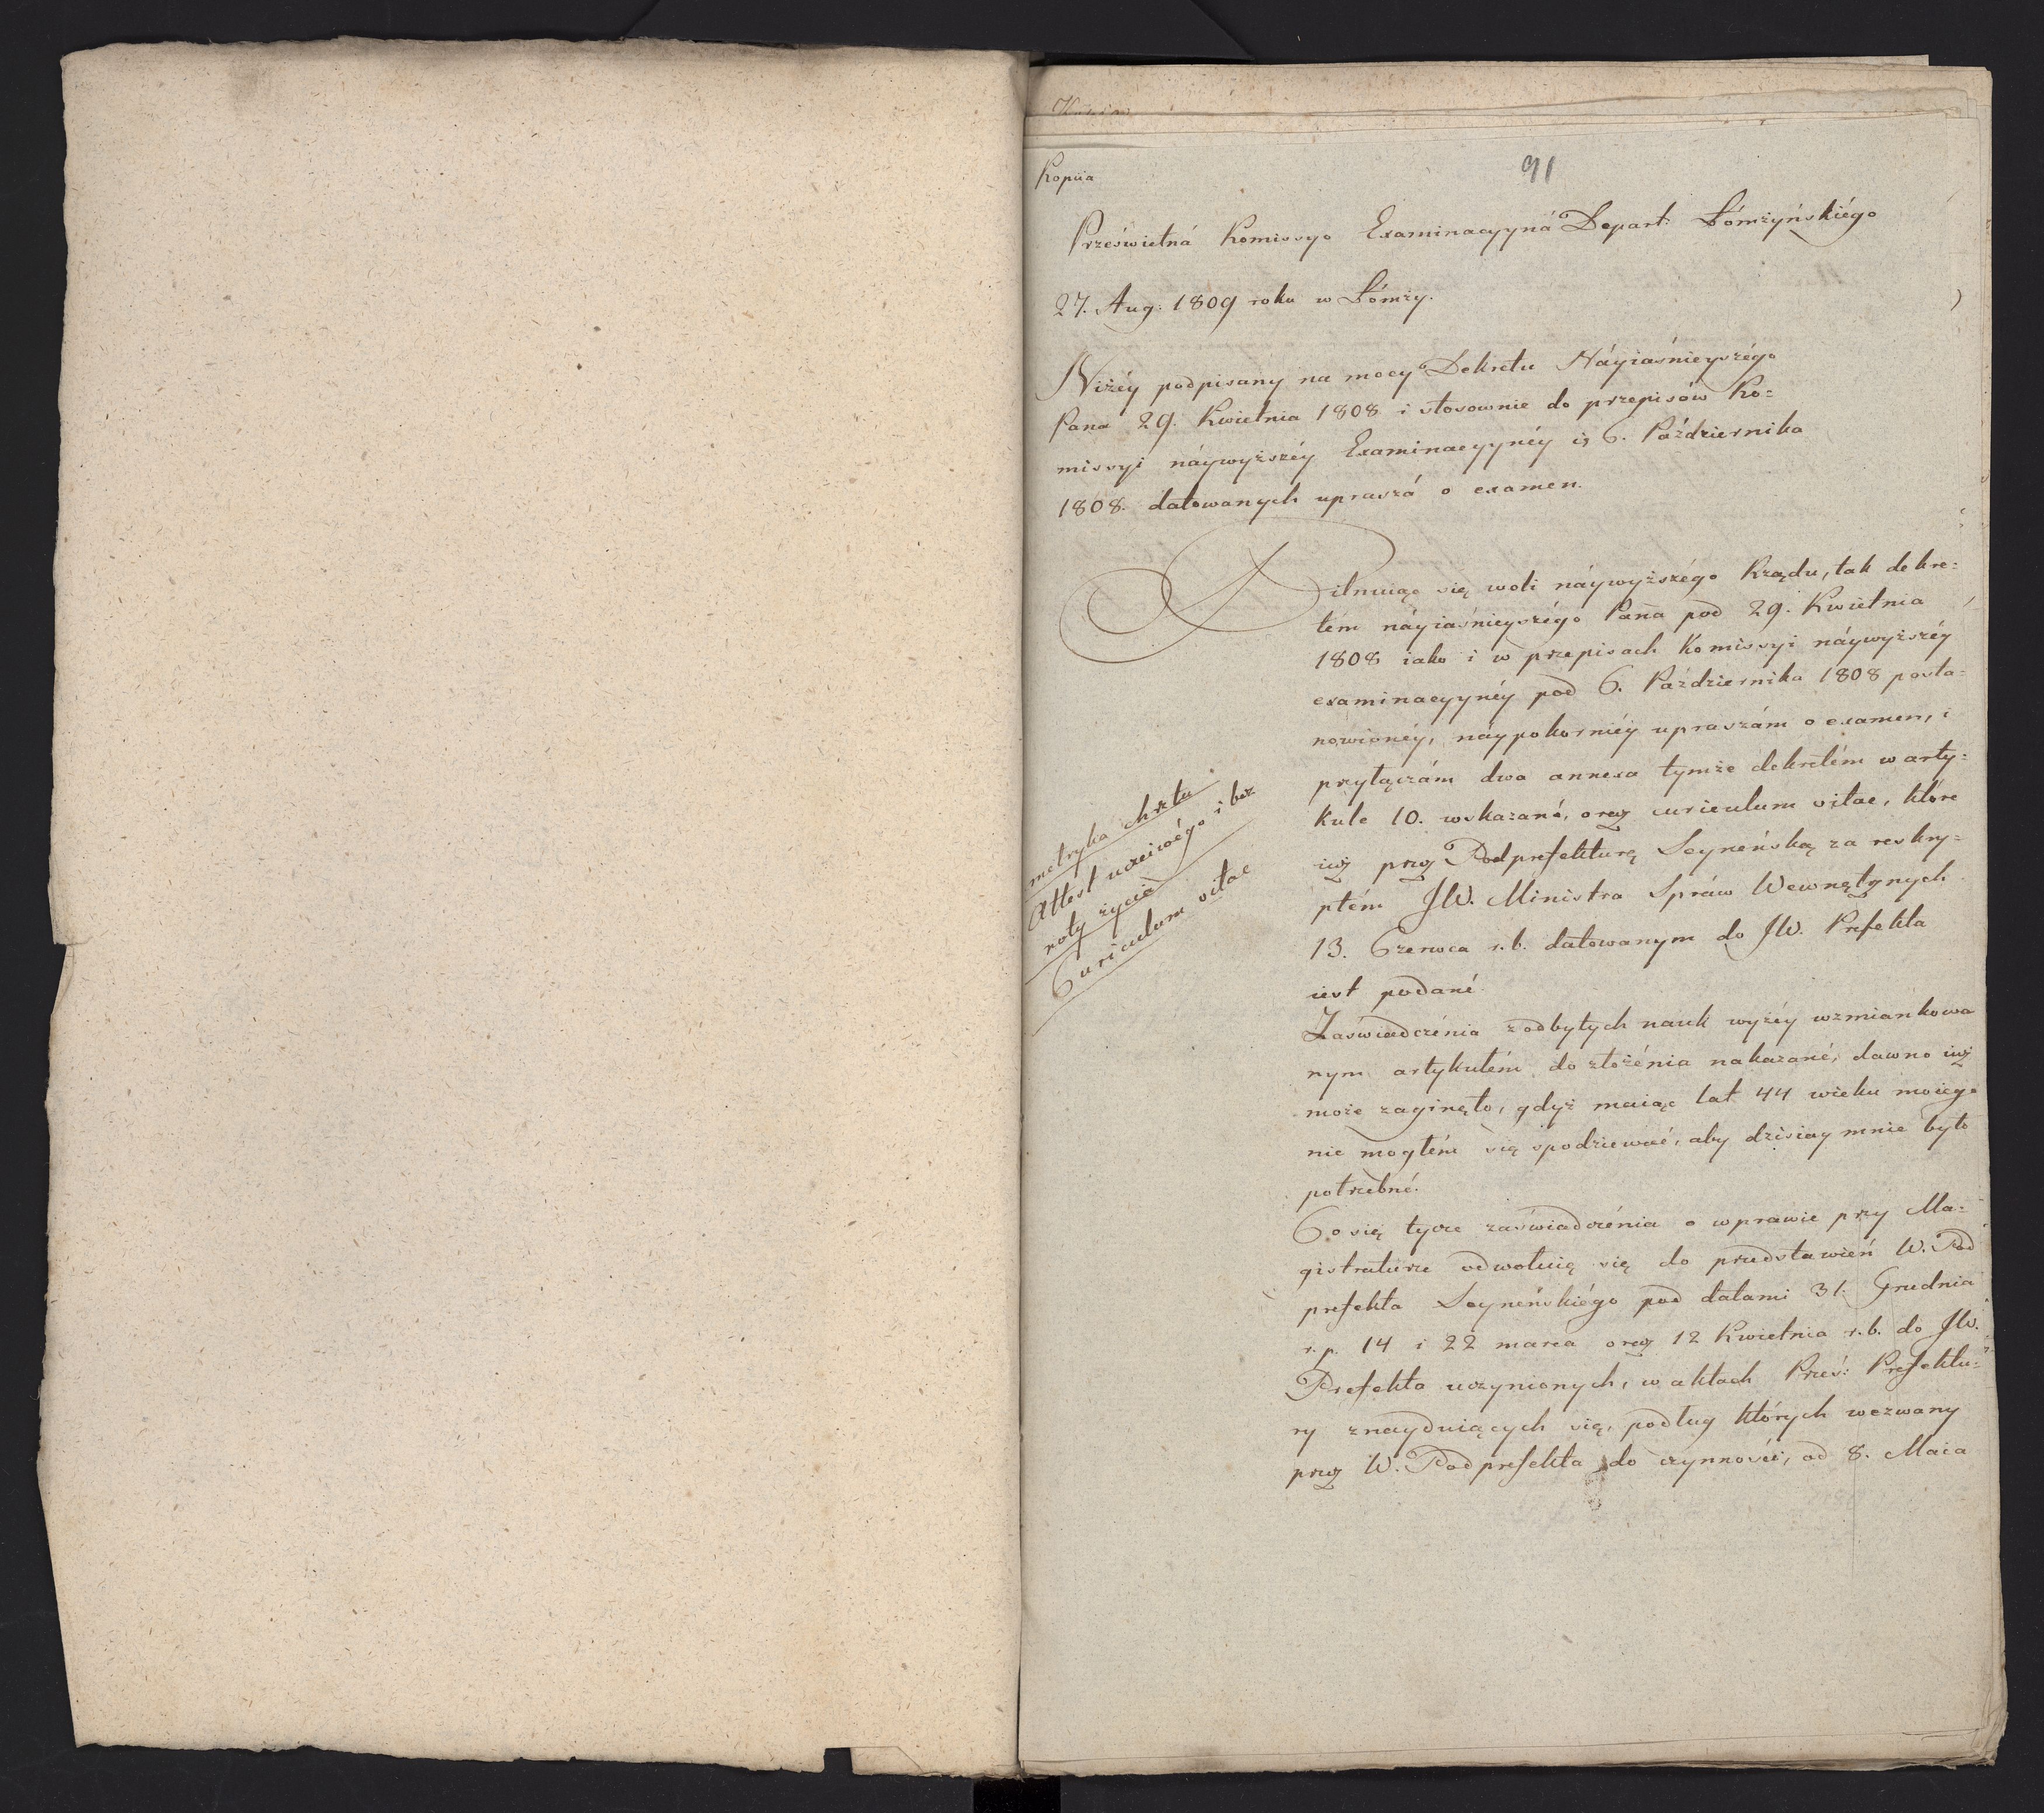 Kopiia
91
Prześwietná Komissyo Examinacyyná Depart: Łómżyńskiégo
27. Aug: 1809 roku w Łómży.
Niżéy podpisany na mocy Dekretu Náyiaśnieyszégo
Pana 29. Kwietnia 1808 i stosownie do przepisów Ko=
missyi náywyższéy Examinacyynéy is 6. Października
1808. datowanych upraszá o examen.
Pilnuiąc się woli náywyższégo Rządu, tak dekre=
tém náyiaśnieyszégo Pana pod 29. Kwietnia
1808 iako i w przepisach Komissyi náywyższéy
examinacyynéy pod 6. Października 1808 posta=
nowionéy, náypokorniéy upraszám o examen, i
przyłączám dwa annexa tymże dekretém w arty=
kule 10. wskazané, oraz curiculum vitae, które
iuż przez Podprefekturę Seyneńską za reskry=
ptém JW. Ministra Spráw Wewnętznych
13. Czerwca r.b. datowanym do JW. Prefekta
iest podané.
metryka chrztu
Attest uczciwégo i bez
noty życia
Curiculum vitae
Zaświadczénia z odbytych nauk wyżéy wzmiankowa
nym artykułém do złożénia nakazané, dawno iuż
może zaginęło, gdyż maiąc lat 44 wieku moiego
nie mogłém się spodziewać, aby dzisiay mnie było
potrzebné.
Co się tycze zaświadczénia o wprawie przy Ma=
gistraturze odwołuię się do przedstawień W. Pod
prefekta Seyneńskiégo pod datami 31. Grudnia
r.p. 14 i 22 marca oraz 12 Kwietnia r.b. do JW.
Prefekta uczynionych, w aktach Prześ: Prefektu=
ry znayduiących się, podług których wezwany
przez W. Podprefekta do czynności, od 8. Maia